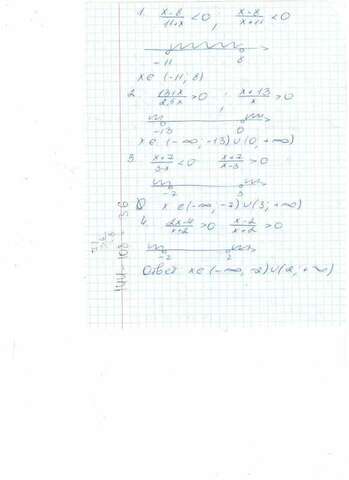 1. x-8/11+x < 0, x-8/x+11 < 0
-11 8
x ∈ (-11, 8)
2. 13+x/2,5x > 0, x+13/x > 0
-13 0
x ∈ (-∞, -13) ∪ (0, +∞)
3. x+7/3-x < 0 x+7/x-3 > 0
-7 3
x ∈ (-∞, -7) ∪ (3, +∞)
4. 2x-4/x+2 > 0 x-2/x+2 > 0
-2 2
Ответ x ∈ (-∞, -2) ∪ (2, +∞)
144-108 = 36